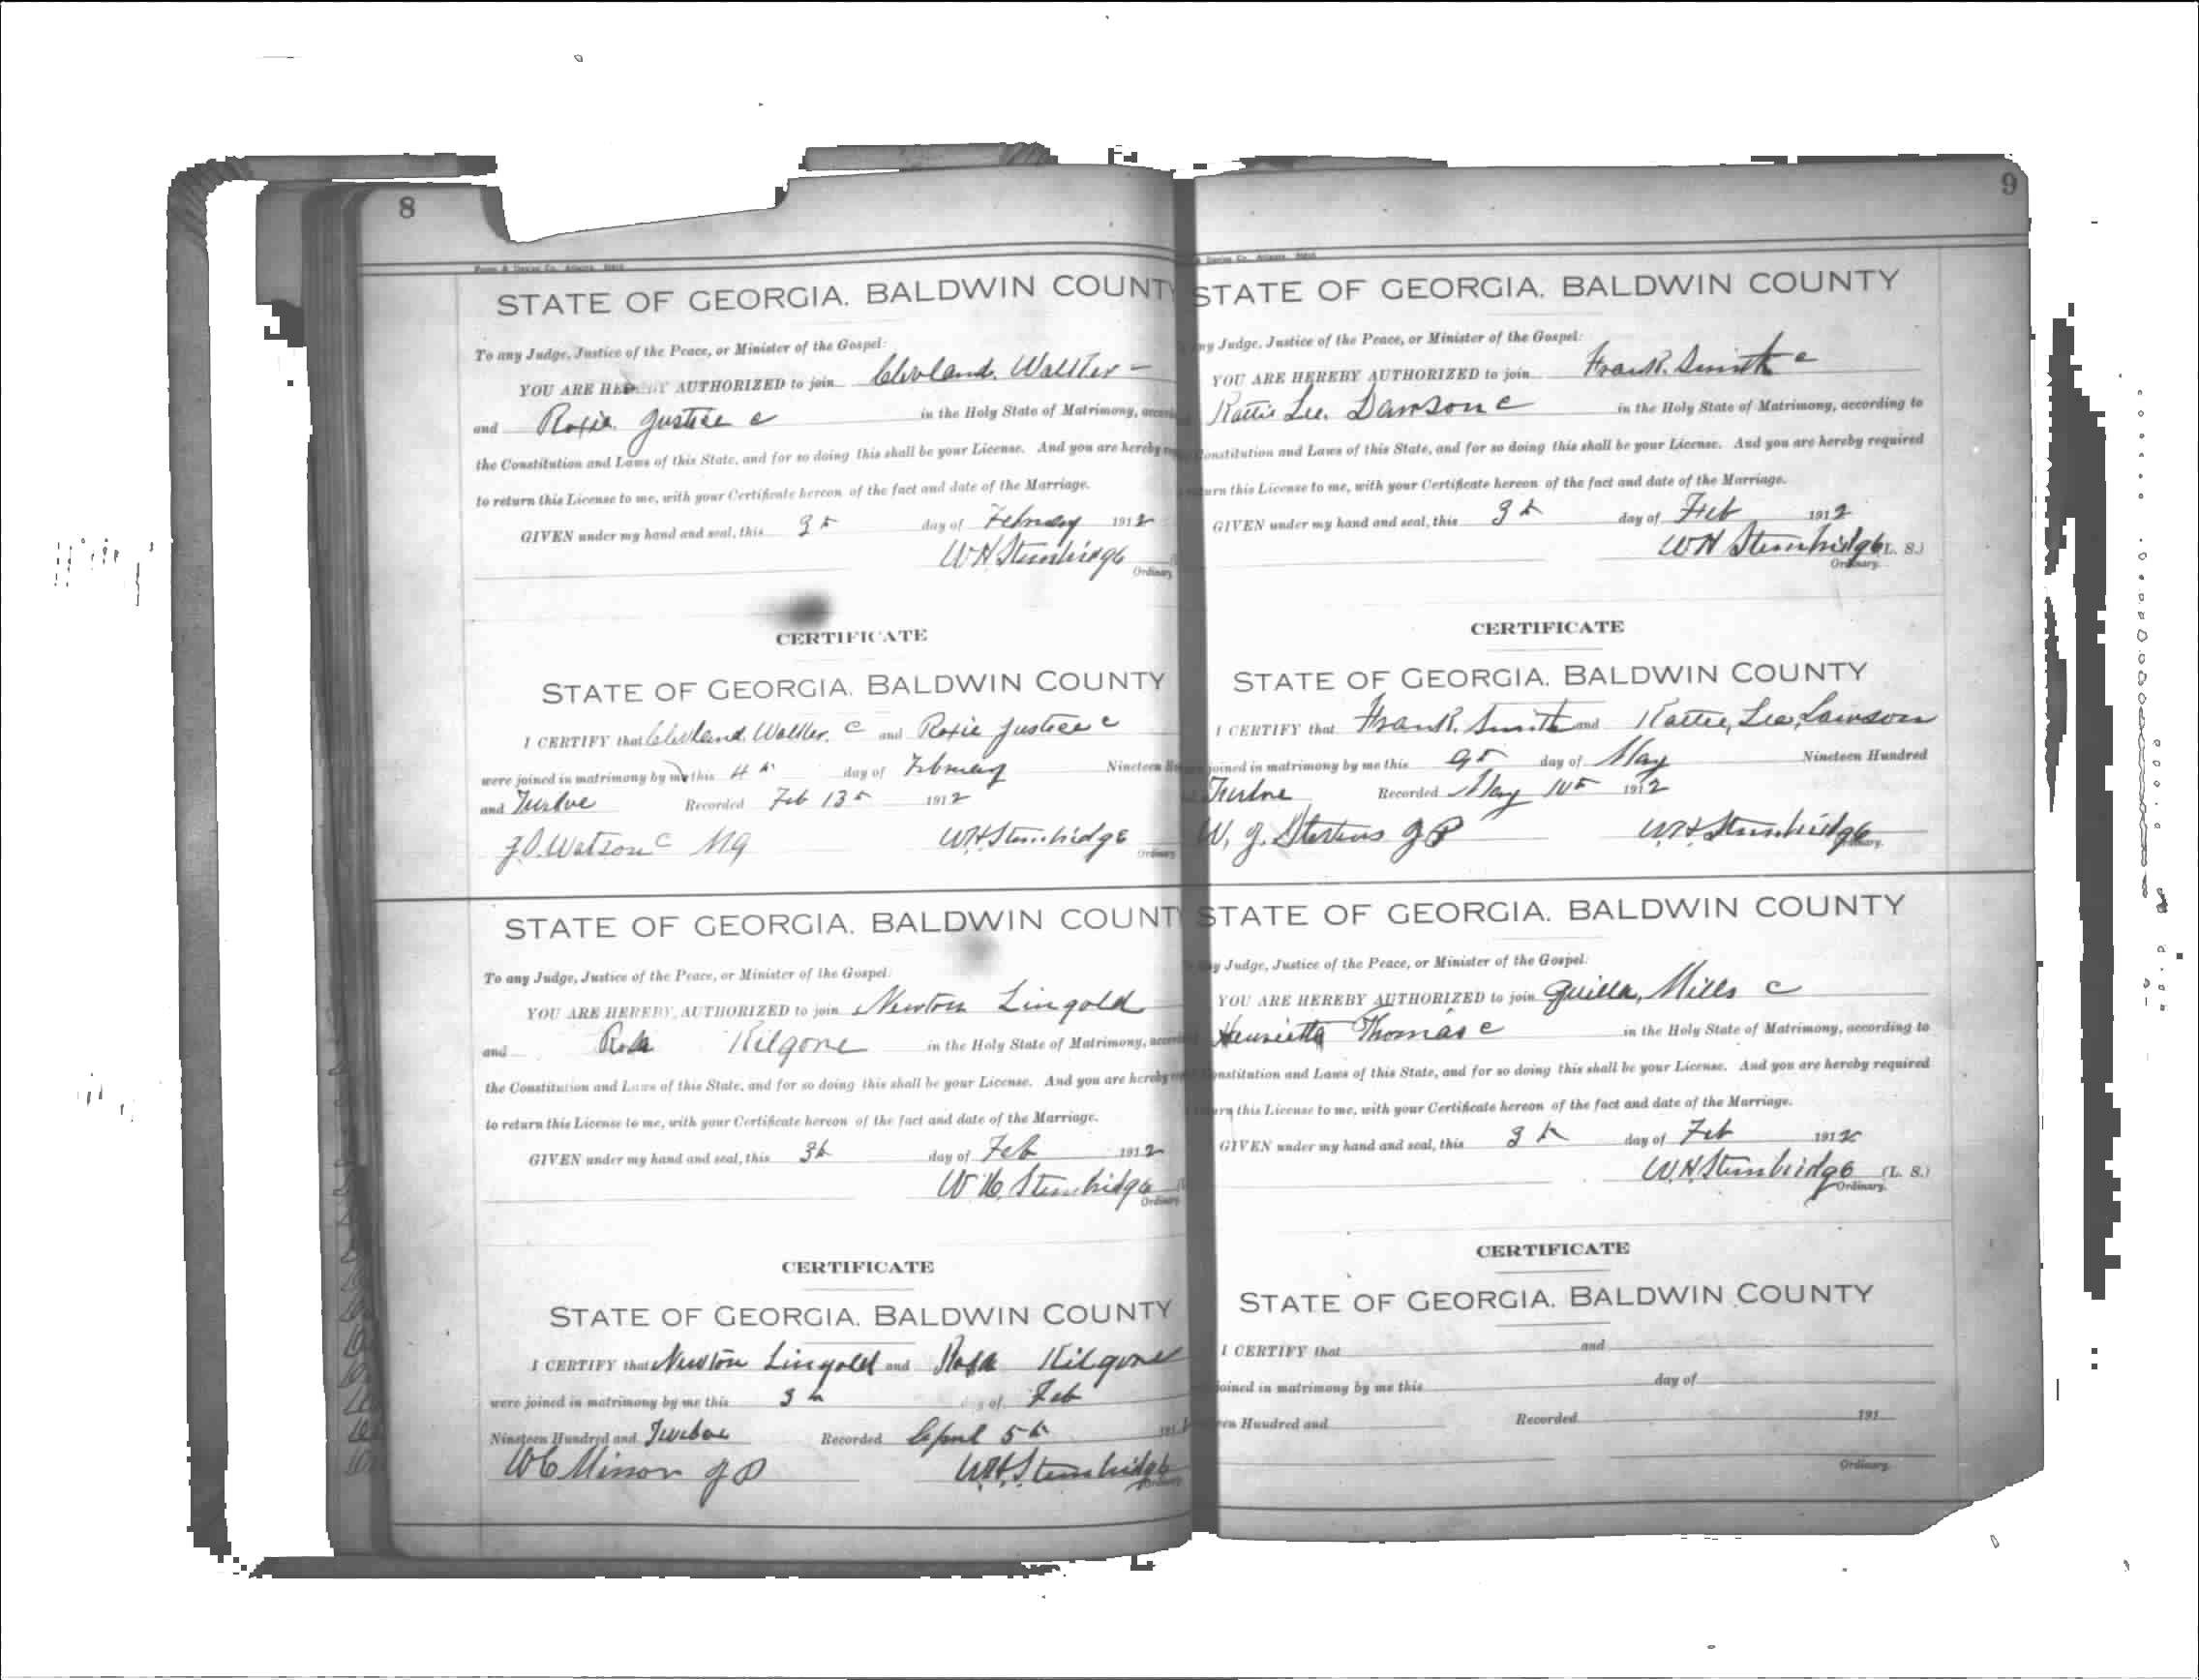 8
STATE OF GEORGIA. BALDWIN COUNTY
To any Judge, Justice of the Peace, or Minister of the Gospel:
YOU ARE HEREBY AUTHORIZED to join Clevland. Walker
and Roxie. Justice c in the Holy State of Matrimony,
the Constitution and Laws of this State, and for so doing this shall be your License. And you are hereby
to return this License to me, with your Certificate hereon of the fact and date of the Marriage.
GIVEN under my hand and seal, this 3 day of February 1912
W H Stembridge
Ordinary
CERTIFICATE
STATE OF GEORGIA. BALDWIN COUNTY
I CERTIFY that Clevland. Walker. c and Roxie Justice c
were joined in matrimony by me this 4 day of February Nineteen
and Twelve Recorded Feb 13 1912
J.D. Watson c MG W.H. Stembridge
Ordinary
STATE OF GEORGIA. BALDWIN COUNT
To any Judge, Justice of the Peace, or Minister of the Gospel:
YOU ARE HEREBY AUTHORIZED to join Newton Lingold
and Rosa Kilgore in the Holy State of Matrimony,
the Constitution and Laws of this State, and for so doing this shall be your License. And you are hereby
to return this License to me, with your Certificate hereon of the fact and date of the Marriage.
GIVEN under my hand and seal, this 3 day of Feb 1912
W H. Stembridge
Ordinary
CERTIFICATE
STATE OF GEORGIA. BALDWIN COUNTY
I CERTIFY that Newton Lingold and Rosa Kilgore
were joined in matrimony by me this 3 day of Feb
Nineteen Hundred and Twelve Recorded April 5
W C Minor J P W.H. Stembridge
Ordinary
9
STATE OF GEORGIA. BALDWIN COUNTY
Judge, Justice of the Peace, or Minister of the Gospel:
YOU ARE HEREBY AUTHORIZED to join Frank. Smith c
Kattie Lee. Lawson c in the Holy State of Matrimony, according to
Constitution and Laws of this State, and for so doing this shall be your License. And you are hereby required
this License to me, with your Certificate hereon of the fact and date of the Marriage.
GIVEN under my hand and seal, this 3 day of Feb 1912
W H Stembridge (L. S.)
Ordinary.
CERTIFICATE
STATE OF GEORGIA. BALDWIN COUNTY
I CERTIFY that Frank. Smith and Kattie, Lee, Lawson
joined in matrimony by me this 9 day of May Nineteen Hundred
Twelve Recorded May 10 1912
W. J. Stevens J P W.H. Stembridge
Ordinary.
STATE OF GEORGIA. BALDWIN COUNTY
Judge, Justice of the Peace, or Minister of the Gospel:
YOU ARE HEREBY AUTHORIZED to join Quilla, Mills c
Henrietta Thomas c in the Holy State of Matrimony, according to
Constitution and Laws of this State, and for so doing this shall be your License. And you are hereby required
this License to me, with your Certificate hereon of the fact and date of the Marriage.
GIVEN under my hand and seal, this 3 day of Feb 1912
W.H. Stembridge (L. S.)
Ordinary.
CERTIFICATE
STATE OF GEORGIA. BALDWIN COUNTY
I CERTIFY that and
joined in matrimony by me this day of
Hundred and Recorded 191
Ordinary.